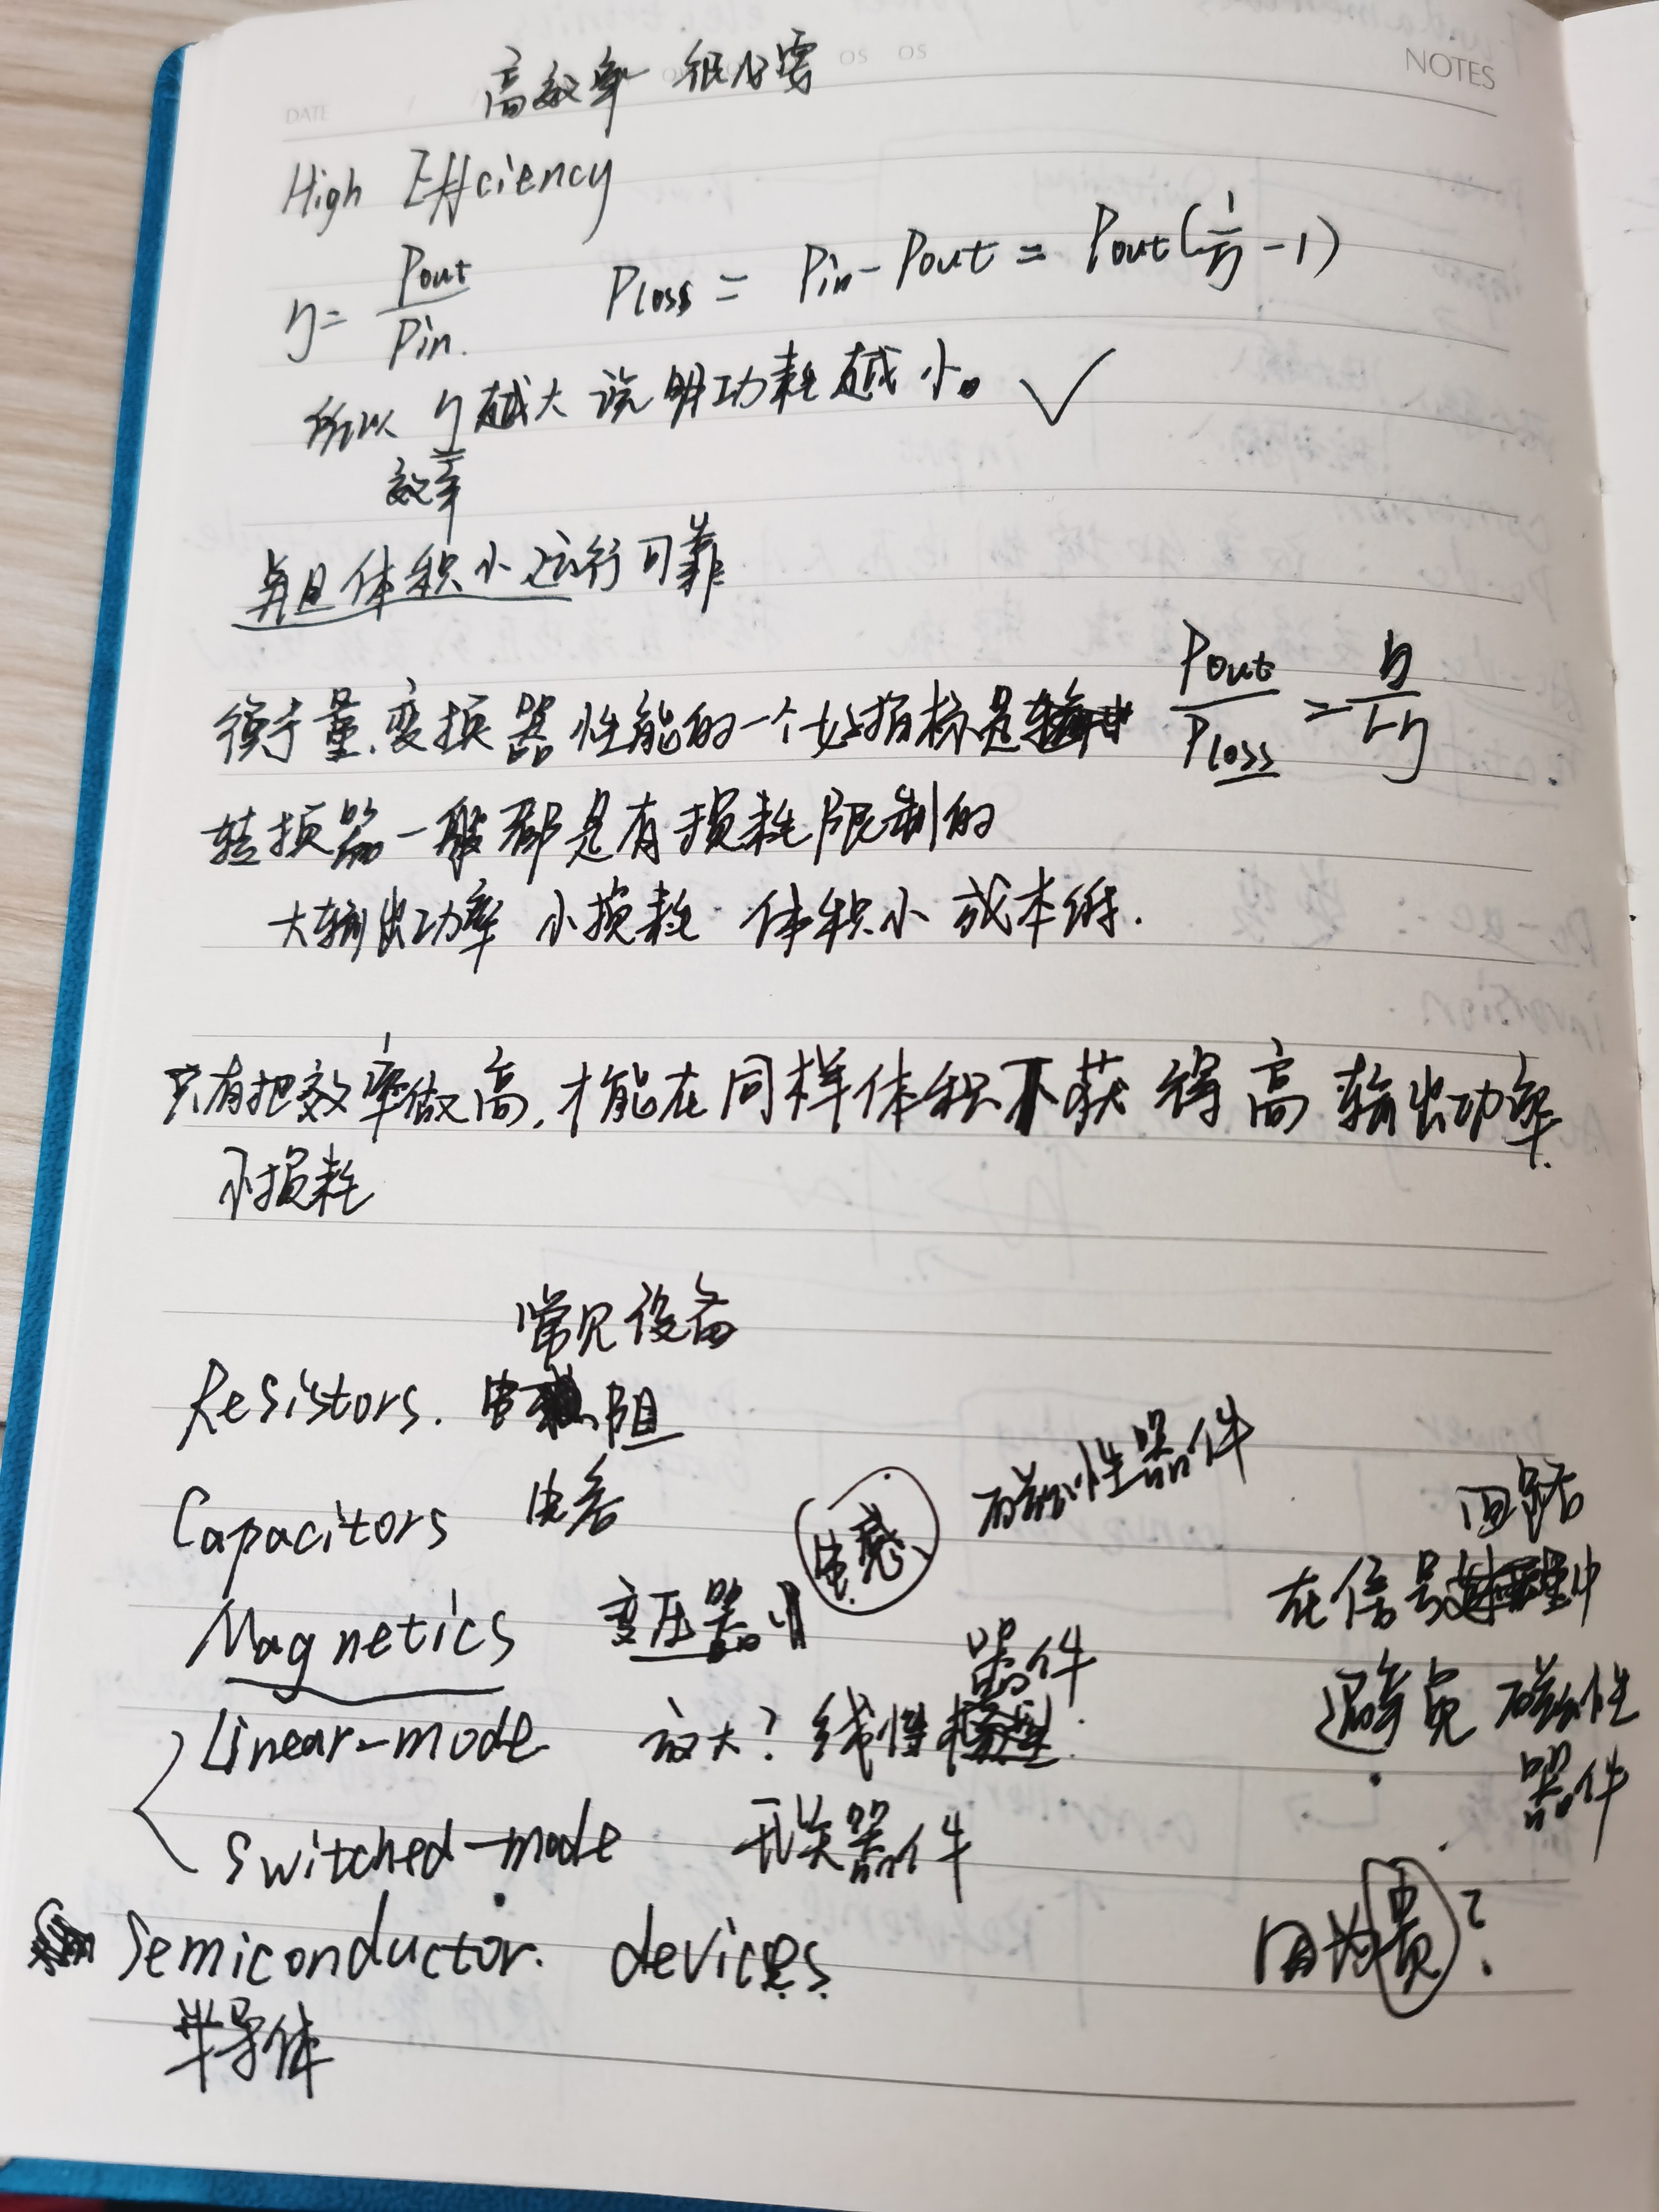 NOTES
DATE
高效率 很必要
High Efficiency
η = Pout / Pin.   Ploss = Pin - Pout = Pout(1/η - 1)
所以 η越大 说明功耗越小。 ✓
效率
并且体积小 运行可靠
衡量变换器性能的一个好指标是 Pout / Ploss = η / 1-η
转换器一般都是有损耗限制的
大输出功率 小损耗 体积小 成本低.
只有把效率做高,才能在同样体积下获得高输出功率.
小损耗
常见设备
Resistors. 电阻
Capacitors 电容
电感 磁性器件
Magnetics 变压器
Linear-mode 放大? 线性器件
Switched-mode 开关器件
Semiconductor. devices
半导体
回路
在信号处理中
避免 磁性
器件
因为贵?